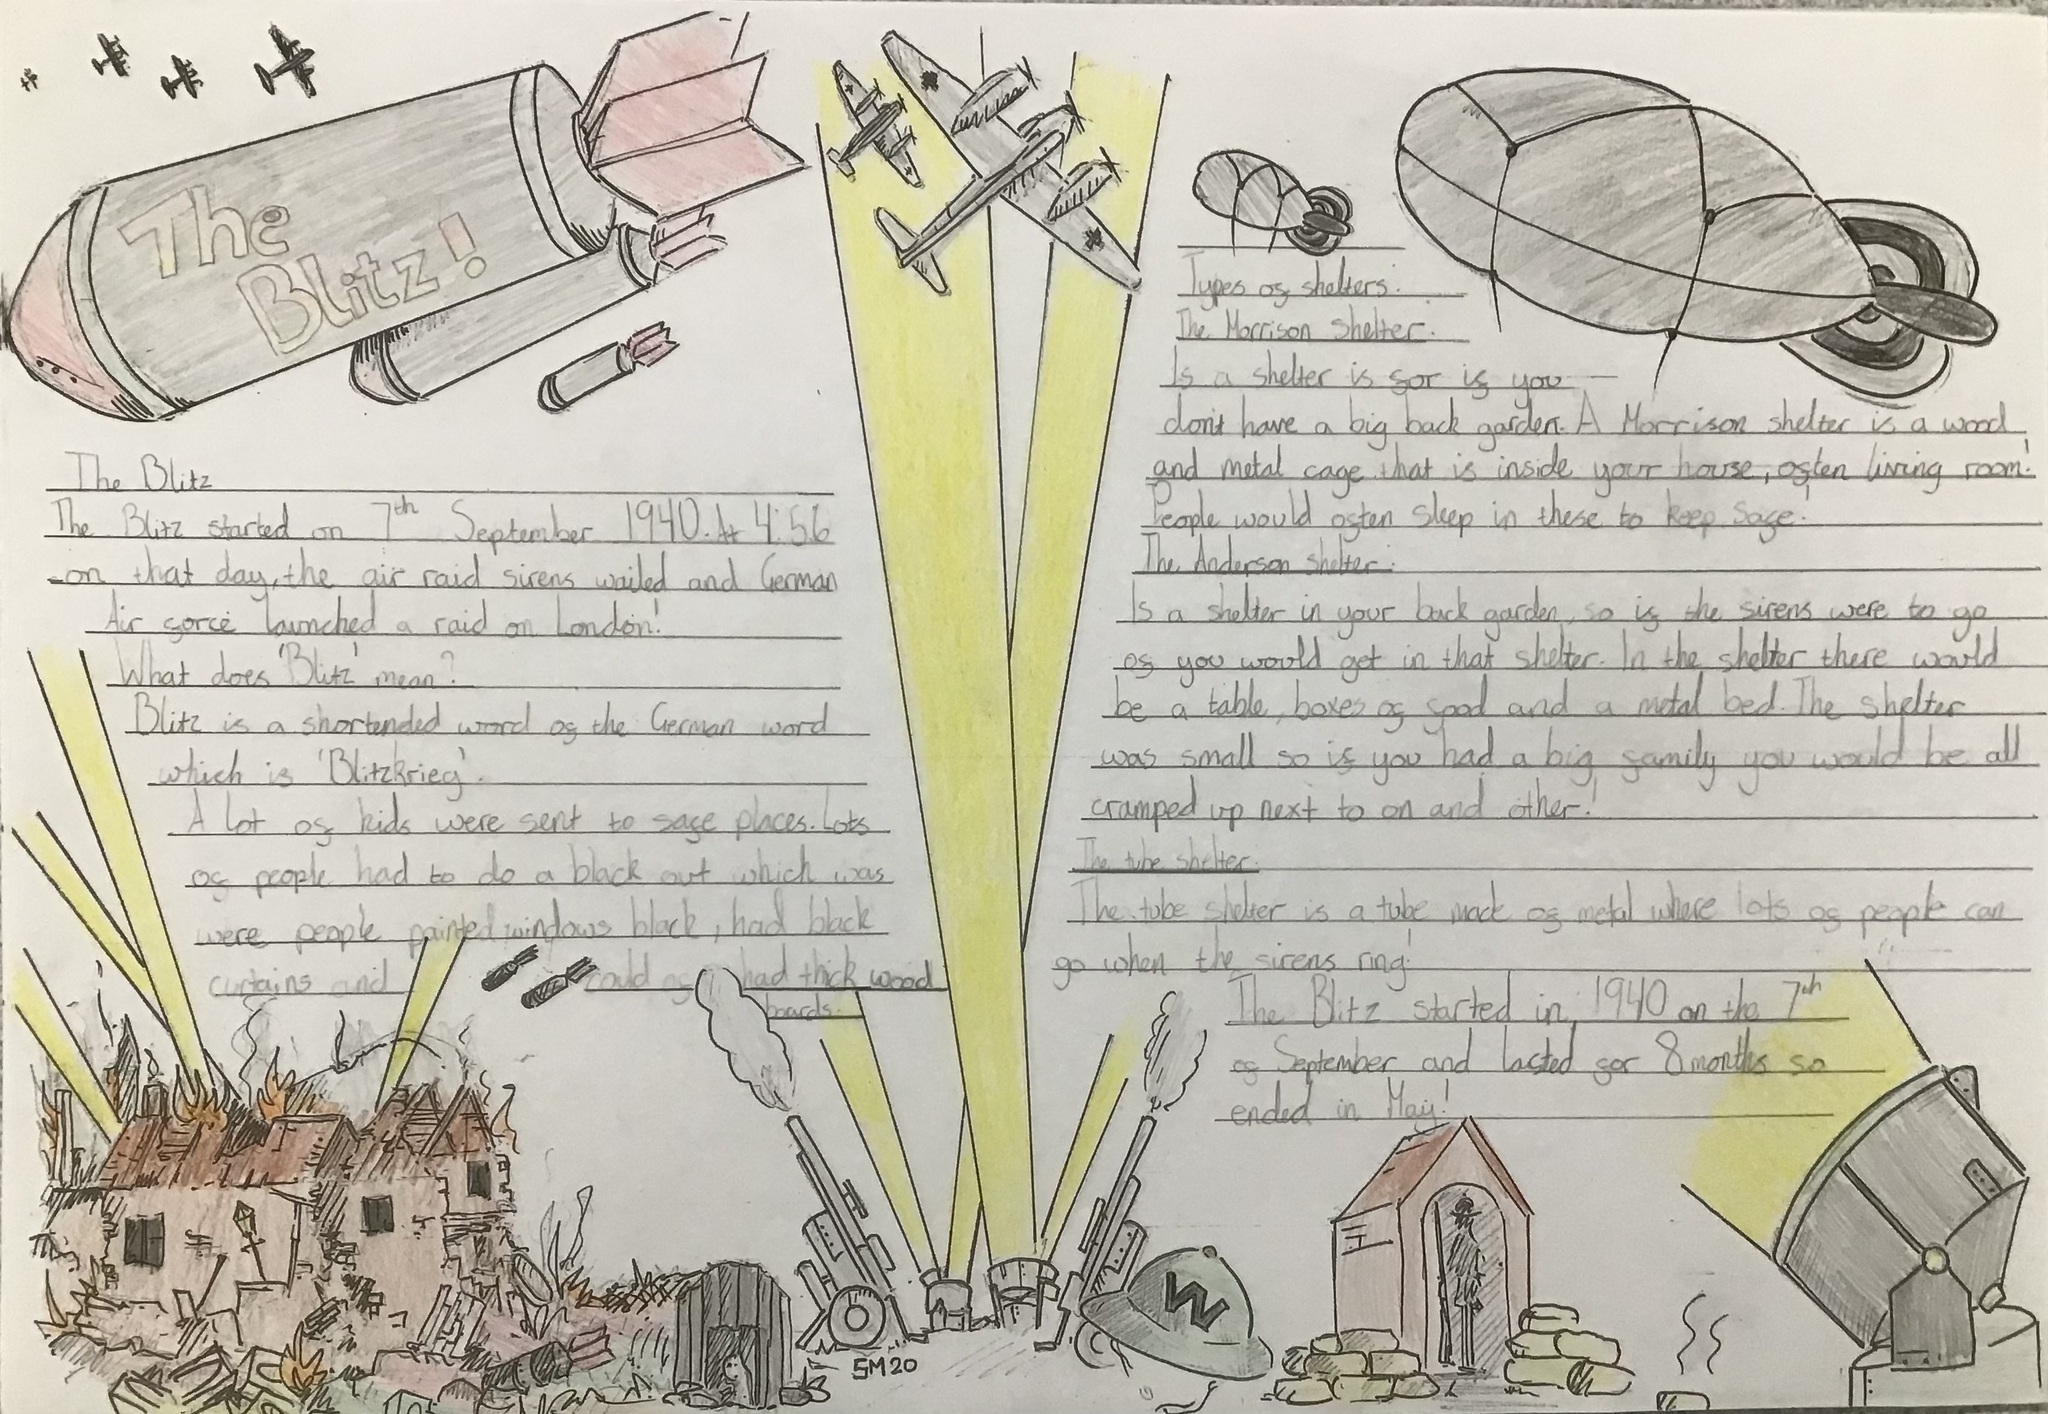 The Blitz!
The Blitz
The Blitz started on 7th September 1940. At 4:56
on that day, the air raid sirens wailed and German
Air force launched a raid on London!
What does 'Blitz' mean?
Blitz is a shortended word of the German word
which is 'Blitzkrieg'.
A lot of kids were sent to safe places. Lots
of people had to do a black out which was
were people painted windows black, had black
curtains and could of had thick wood
boards.
Types of shelters:
The Morrison shelter:
Is a shelter is for if you
don't have a big back garden. A Morrison shelter is a wood
and metal cage that is inside your house, often living room!
People would often sleep in these to keep safe!
The Anderson shelter:
Is a shelter in your back garden, so if the sirens were to go
of you would get in that shelter. In the shelter there would
be a table, boxes of food and a metal bed. The shelter
was small so if you had a big family you would be all
cramped up next to on and other!
The tube shelter:
The tube shelter is a tube made of metal where lots of people can
go when the sirens ring!
The Blitz started in 1940 on the 7th
of September and lasted for 8 months so
ended in May!
W
SM20